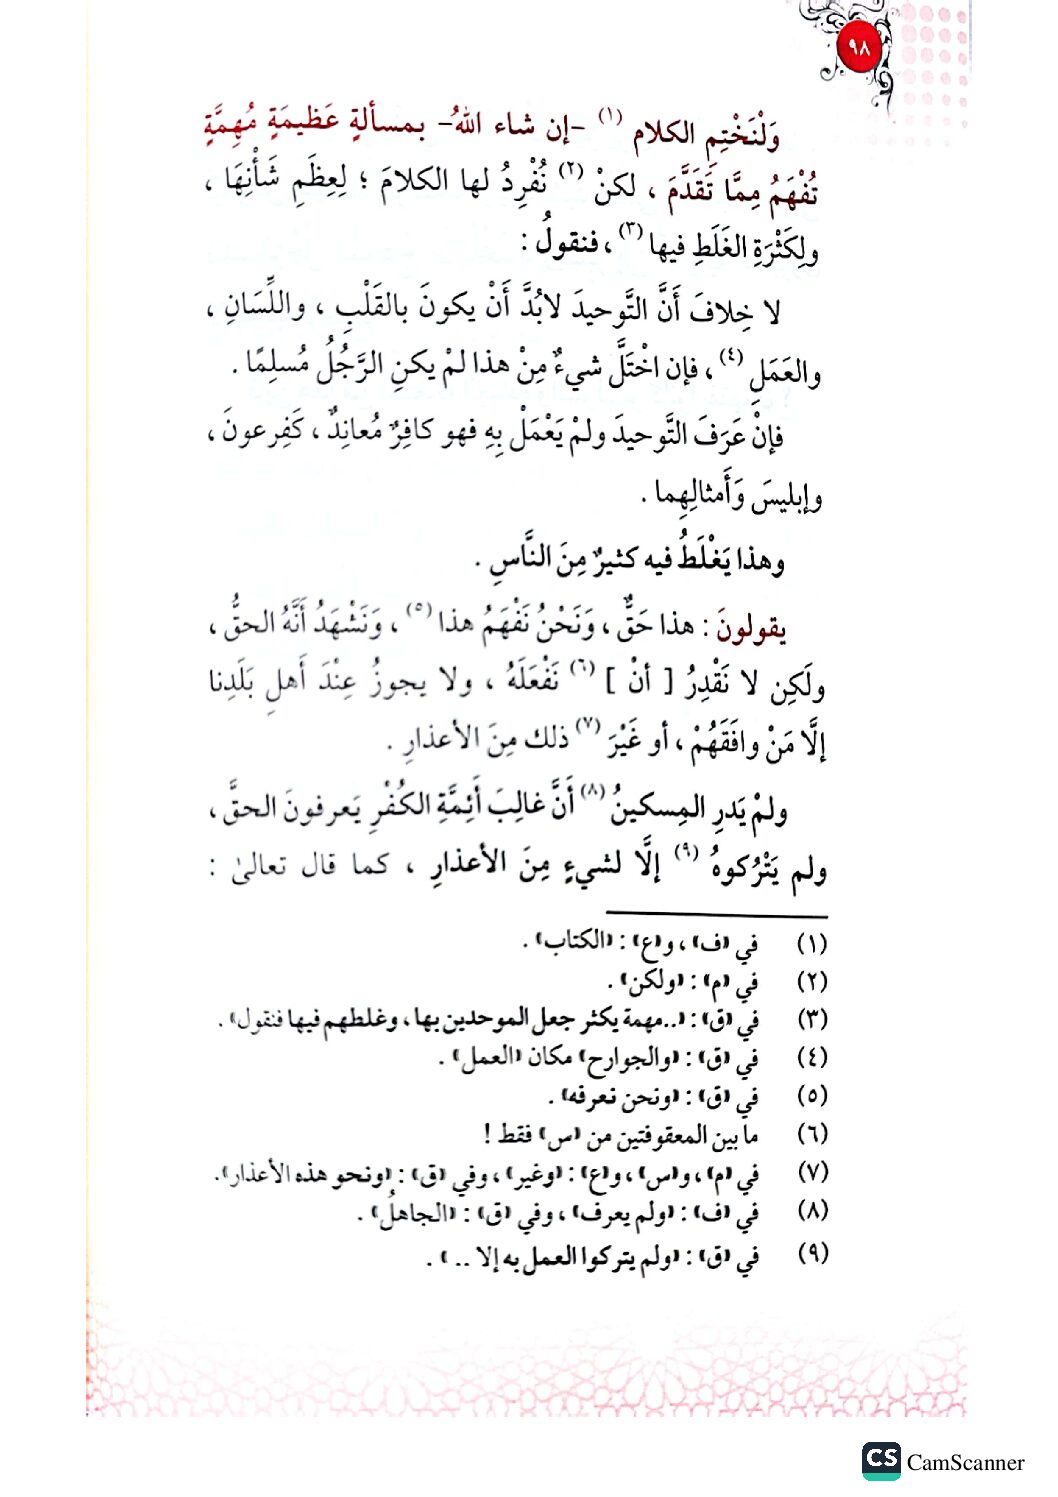 ٩٨
وَلْنَخْتِمِ الكلام (١) -إن شاء اللهُ- بمسألةٍ عَظيمَةٍ مُهِمَّةٍ
تُفْهَمُ مِمَّا تَقَدَّمَ ، لكنْ (٢) نُفْرِدُ لها الكلامَ ؛ لِعِظَمِ شَأْنِهَا ،
ولِكَثْرَةِ الغَلَطِ فيها (٣) ، فنقولُ :
لا خِلافَ أَنَّ التَّوحيدَ لابُدَّ أَنْ يكونَ بالقَلْبِ ، واللِّسَانِ ،
والعَمَلِ (٤) ، فإن اخْتَلَّ شيءٌ مِنْ هذا لمْ يكنِ الرَّجُلُ مُسلِمًا .
فإنْ عَرَفَ التَّوحيدَ ولمْ يَعْمَلْ بِهِ فهو كافِرٌ مُعانِدٌ ، كَفِرعونَ ،
وإبليسَ وَأَمثالِهِما .
وهذا يَغْلَطُ فيه كثيرٌ مِنَ النَّاسِ .
يقولونَ : هذا حَقٌّ ، وَنَحْنُ نَفْهَمُ هذا (٥) ، وَنَشْهَدُ أَنَّهُ الحقُّ ،
ولَكِن لا نَقْدِرُ [ أنْ ] (٦) نَفْعَلَهُ ، ولا يجوزُ عِنْدَ أَهلِ بَلَدِنا
إلَّا مَنْ وافَقَهُمْ ، أو غَيْرَ (٧) ذلك مِنَ الأعذارِ .
ولمْ يَدرِ المِسكينُ (٨) أَنَّ غالِبَ أَئِمَّةِ الكُفْرِ يَعرفونَ الحقَّ ،
ولم يَتْرُكوهُ (٩) إلَّا لشيءٍ مِنَ الأعذارِ ، كما قال تعالىٰ :
(١) في «ف» ، و«ع» : «الكتاب» .
(٢) في «م» : «ولكن» .
(٣) في «ق» : «..مهمة يكثر جعل الموحدين بها ، وغلطهم فيها فنقول» .
(٤) في «ق» : «والجوارح» مكان «العمل» .
(٥) في «ق» : «ونحن نعرفه» .
(٦) ما بين المعقوفتين من «س» فقط !
(٧) في «م» ، و«س» ، و«ع» : «وغير» ، وفي «ق» : «ونحو هذه الأعذار» .
(٨) في «ف» : «ولم يعرف» ، وفي «ق» : «الجاهلُ» .
(٩) في «ق» : «ولم يتركوا العمل به إلا .. » .
CS CamScanner